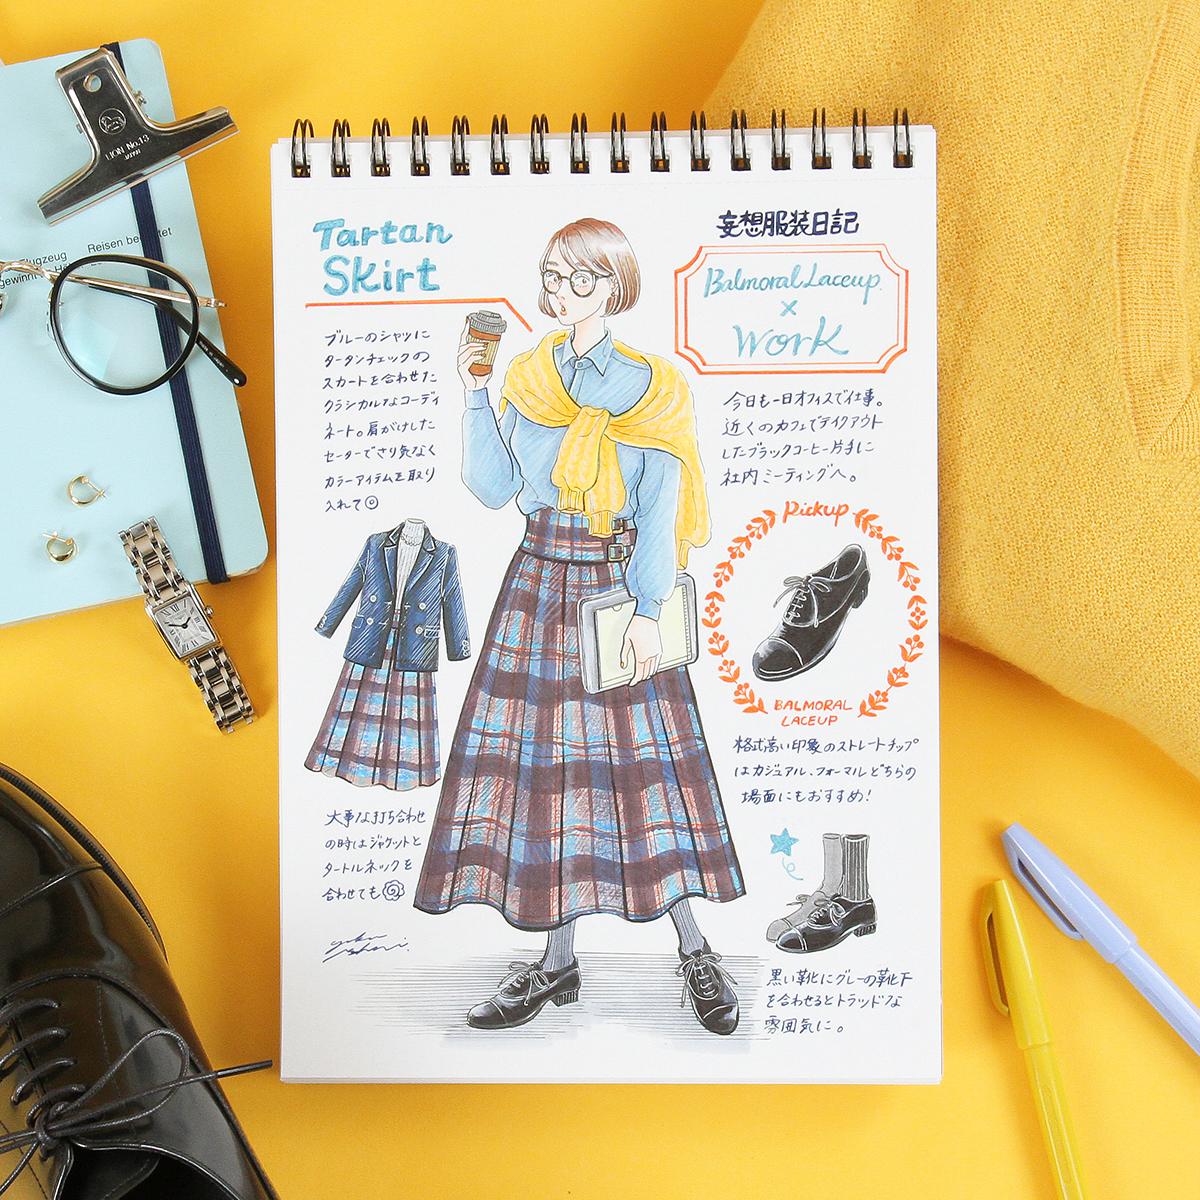 LION No.13
JAPAN
Reisen be
tet
lugzeug
gewinnt
Tartan
Skirt
ブルーのシャツに
タータンチェックの
スカートを合わせた
クラシカルなコーディ
ネート。肩がけした
セーターでさり気なく
カラーアイテムを取り
入れて◎
妄想服装日記
Balmoral Laceup
×
Work
今日も一日オフィスで仕事。
近くのカフェでテイクアウト
したブラックコーヒー片手に
社内ミーティングへ。
Pickup
BALMORAL
LACEUP
格式高い印象のストレートチップ
はカジュアル、フォーマルどちらの
場面にもおすすめ!
大事な打ち合わせ
の時はジャケットと
タートルネックを
合わせても
黒い靴にグレーの靴下
を合わせるとトラッドな
雰囲気に。